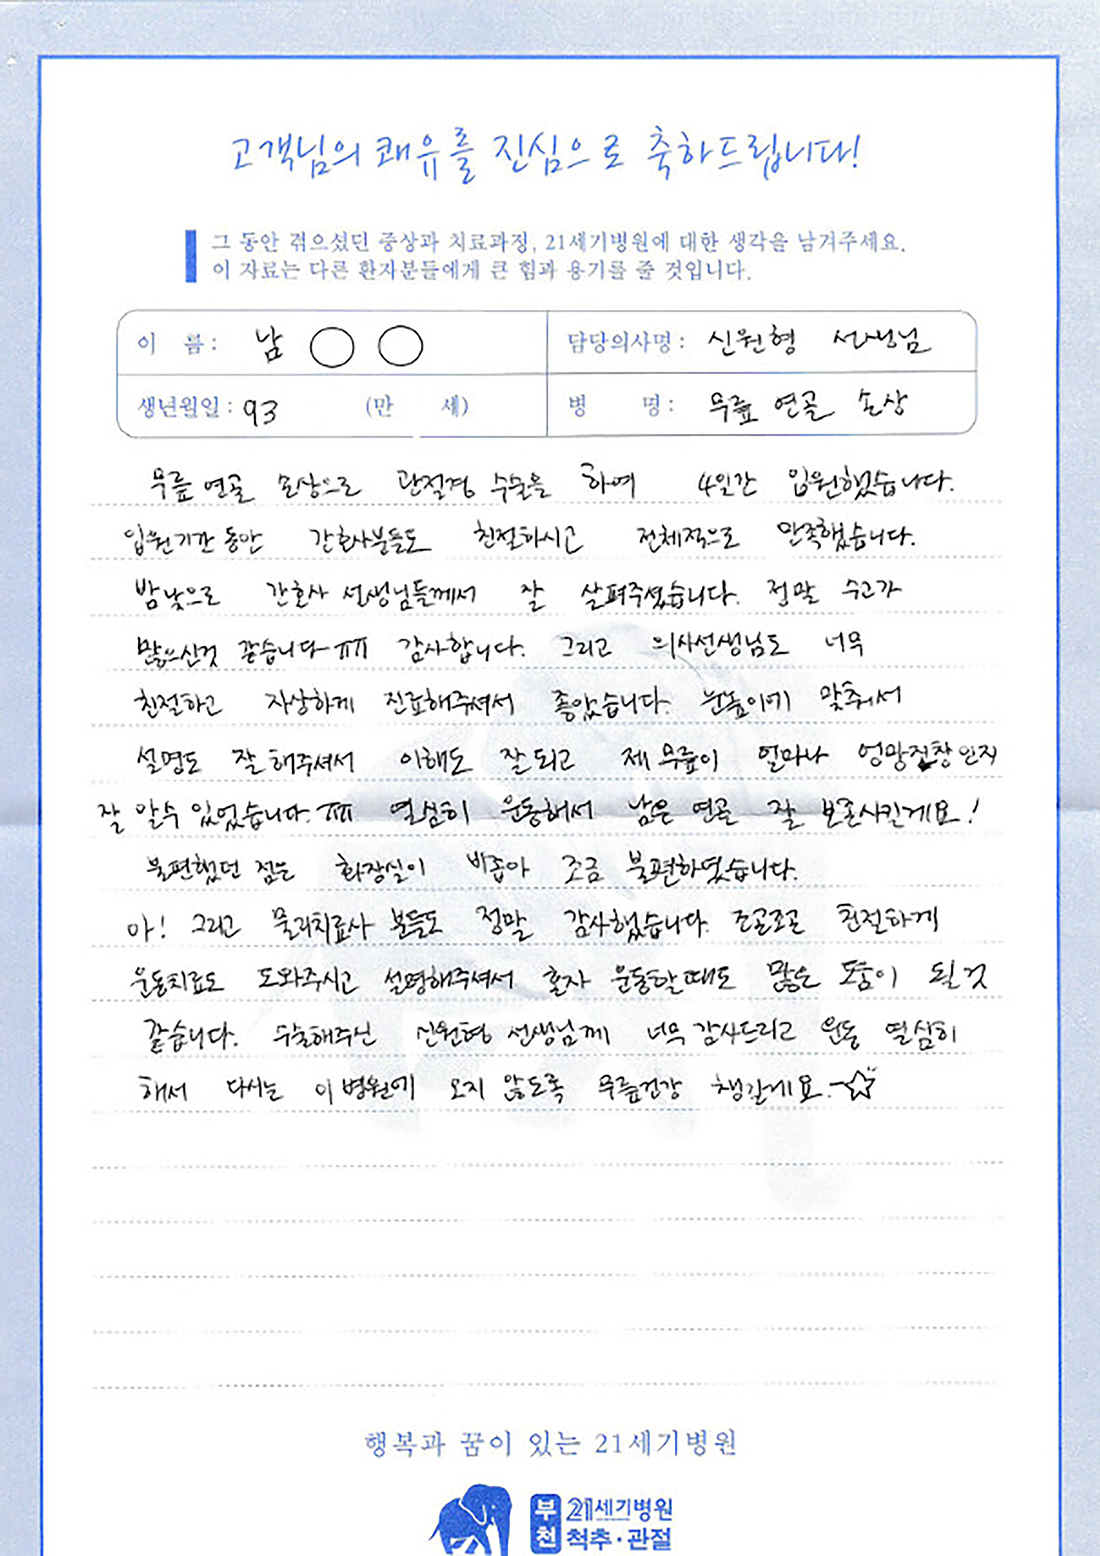 고객님의 쾌유를 진심으로 축하드립니다!
그 동안 겪으셨던 증상과 치료과정, 21세기병원에 대한 생각을 남겨주세요.
이 자료는 다른 환자분들에게 큰 힘과 용기를 줄 것입니다.
이 름 : 남 ○ ○
담당의사명 : 신원형 선생님
생년월일 : 93 (만 세)
병 명 : 무릎 연골 손상
무릎 연골 손상으로 관절경 수술을 하여 4일간 입원했습니다.
입원기간 동안 간호사분들도 친절하시고 전체적으로 만족했습니다.
밤낮으로 간호사 선생님들께서 잘 살펴주셨습니다. 정말 수고가
많으신것 같습니다 ㅠㅠ 감사합니다. 그리고 의사선생님도 너무
친절하고 자상하게 진료해주셔서 좋았습니다. 눈높이에 맞춰서
설명도 잘 해주셔서 이해도 잘되고 제 무릎이 얼마나 엉망진창인지
잘 알수 있었습니다. ㅠㅠ 열심히 운동해서 남은 연골 잘 보존시킨게요!
불편했던 점은 화장실이 비좁아 조금 불편하였습니다.
아! 그리고 물리치료사 분들도 정말 감사했습니다. 조곤조곤 친절하게
운동치료도 도와주시고 설명해주셔서 혼자 운동할때도 많은 도움이 될것
같습니다. 수술해주신 신원형 선생님께 너무 감사드리고 운동 열심히
해서 다시는 이 병원에 오지 않도록 무릎건강 챙길게요.~☆
행복과 꿈이 있는 21세기병원
부천 21세기병원
척추·관절